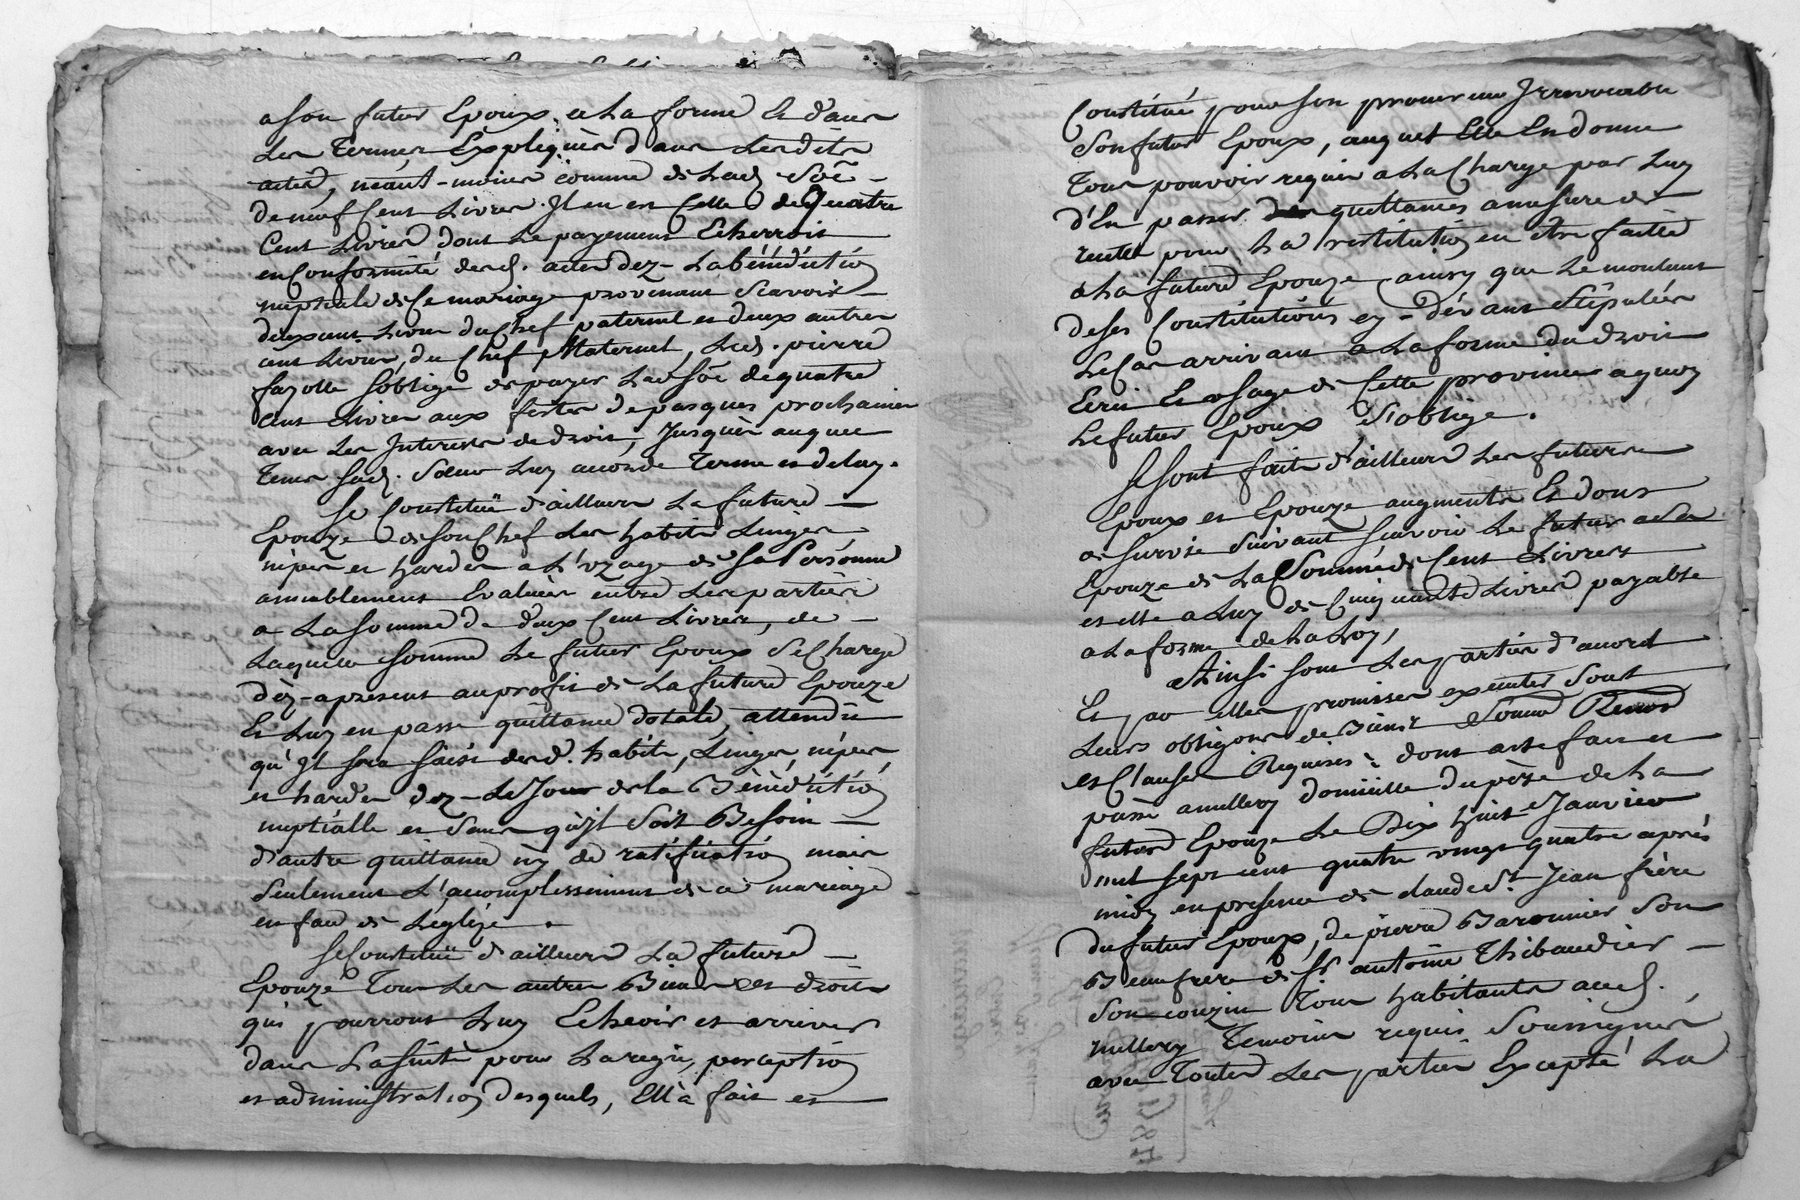 a son futur Epoux, a la forme Et dans
Les Termes Expliqués dans Lesdits
actes, néant-moins comme de Lad. Soê
de neuf Cent Livres. Il en est Celle de Quatre
Cent Livres dont Le payement Echerroit
en Conformité desd. actes dez-La bénédictiõ
nuptiale de Ce mariage provenant Scavoir
deux cent Livres du Chef paternel et deux autres
cent Livres, du Chef Maternel, Led. pierre
fayolle s'oblige de payer Lad soê de quatre
Cent Livres aux festes de pasques prochaines
avec Les Interests de droit, Jusques auquel
Tems sad. Soeur Luy accorde Terme et delay.
Se Constitüe d'ailleurs La future
Epouze de son Chef Les habits Linges
nipes et hardes a L'uzage de Sa Personne
amiablement Evalués entre Les parties
a La Somme de deux Cent Livres, de
Laquelle Somme Le futur Epoux Se Charge
dèz-apresent au profit de La future Epouze
Et Luy en passe quittance dotale, attendu
qu'Il sera saisi desd. habits, Linges, nipes,
et hardes dez-Le Jour de la Bénédictiõ
nuptialle et Sans qu'Il Soit Besoin
d'autre quittance ny de ratificatiõ mais
Seulement L'acomplissement de ce mariage
en face de L'eglize.
Se Constitüe d'ailleurs La future
Epouze Tous Les autres Biens et droits
qui pourront Luy Echeoir et arriver
dans La suite pour La regie, perceptiõ
et administratiõ desquels, Elle a fait et
Constitué pour son procureur Irrevocable
Son futur Epoux, auquel Elle En donne
Tout pouvoir requis a La Charge par Luy
d'En passer quittances a mesure de
recette pour La restitutiõ en être faitte
a La future Epouze ainsy que Le montant
de ses Constitutions cy-dévant Stipulées
Le Cas arrivant a La forme du droit
Ecrit Et usage de Cette province a quoy
Le futur Epoux S'oblige.
Se sont faits d'ailleurs Les futurs
Epoux et Epouze augments Et dons
de survie Suivant Scavoir Le futur a Sa
Epouze de La Somme de Cent Livres
et elle a Luy de Cinquante Livres payable
a La forme de La Loy,
Ainsi sont Les parties d'accord
Et par elles promisses executer Sont
Leurs obligons de Biens Soumõ Renonõ
et Clauses Requises: dont acte fait et
passé a millery domicille du père de La
future Epouze Le Dix huit Janvier
mil sept cent quatre vingt quatre après
midy en presence de claude St. Jean frère
du futur Epoux, de pierre Baronnier Son
Beaufrere de Sr. antoine Thibaudier
Son couzin Tous habitants aud.
millery Temoins requis Soussignés
avec Toutes Les parties Excepté La